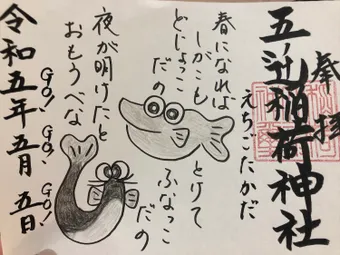 奉拝
五之辻稲荷神社
えちごたかだ
春になれば
しがこも とけて
どじょっこ
だの
ふなっこ
だの
夜が明けたと
おもうべな
GO! GO! GO!
令和五年五月五日